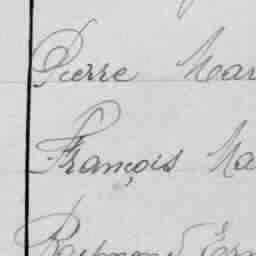 Pierre Mar
François Ma
Raymond